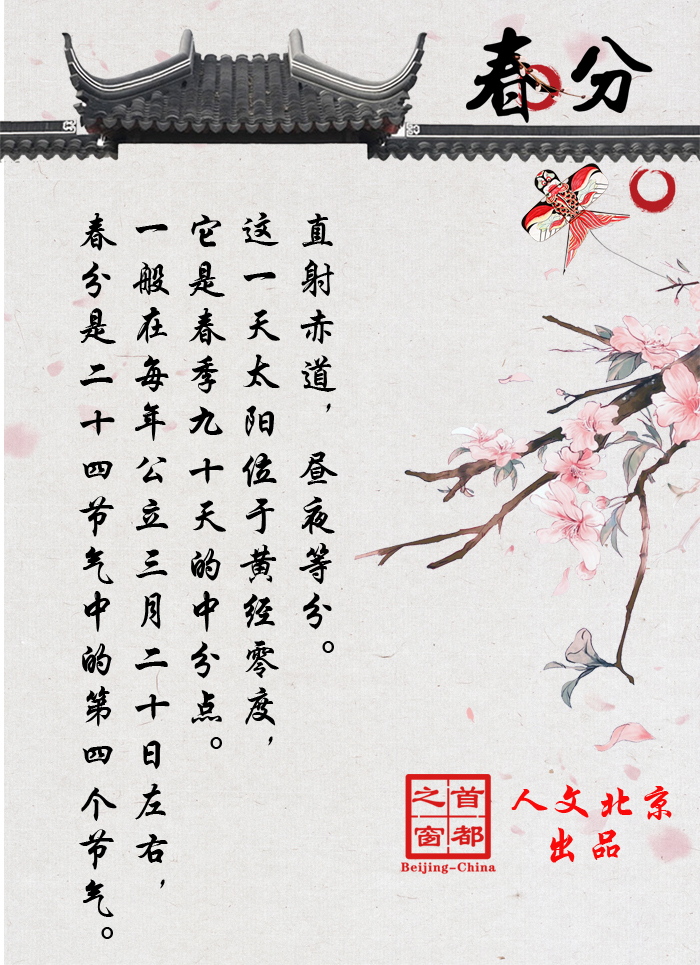 春分
春分是二十四节气中的第四个节气。
一般在每年公立三月二十日左右，
它是春季九十天的中分点。
这一天太阳位于黄经零度，
直射赤道，昼夜等分。
首都
之窗
Beijing-China
人文北京
出品